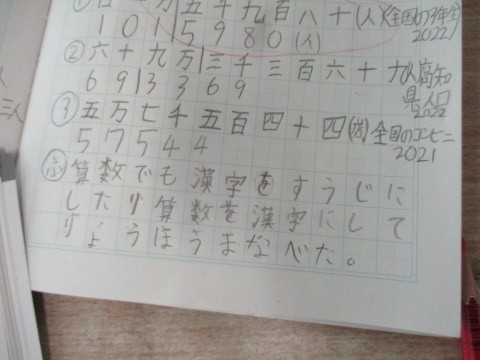 ①百十万五千九百八十(人)(全国の少年生
1 0 1 5 9 8 0 (人) 2022)
②六十九万三千三百六十九人高知
6 9 3 3 6 9 県人口
2022
③五万七千五百四十四(店)全国のコンビニ
5 7 5 4 4 2021
ふ算数でも漢字をすうじに
したり算数を漢字にして
りょうほうまなべた。
三人